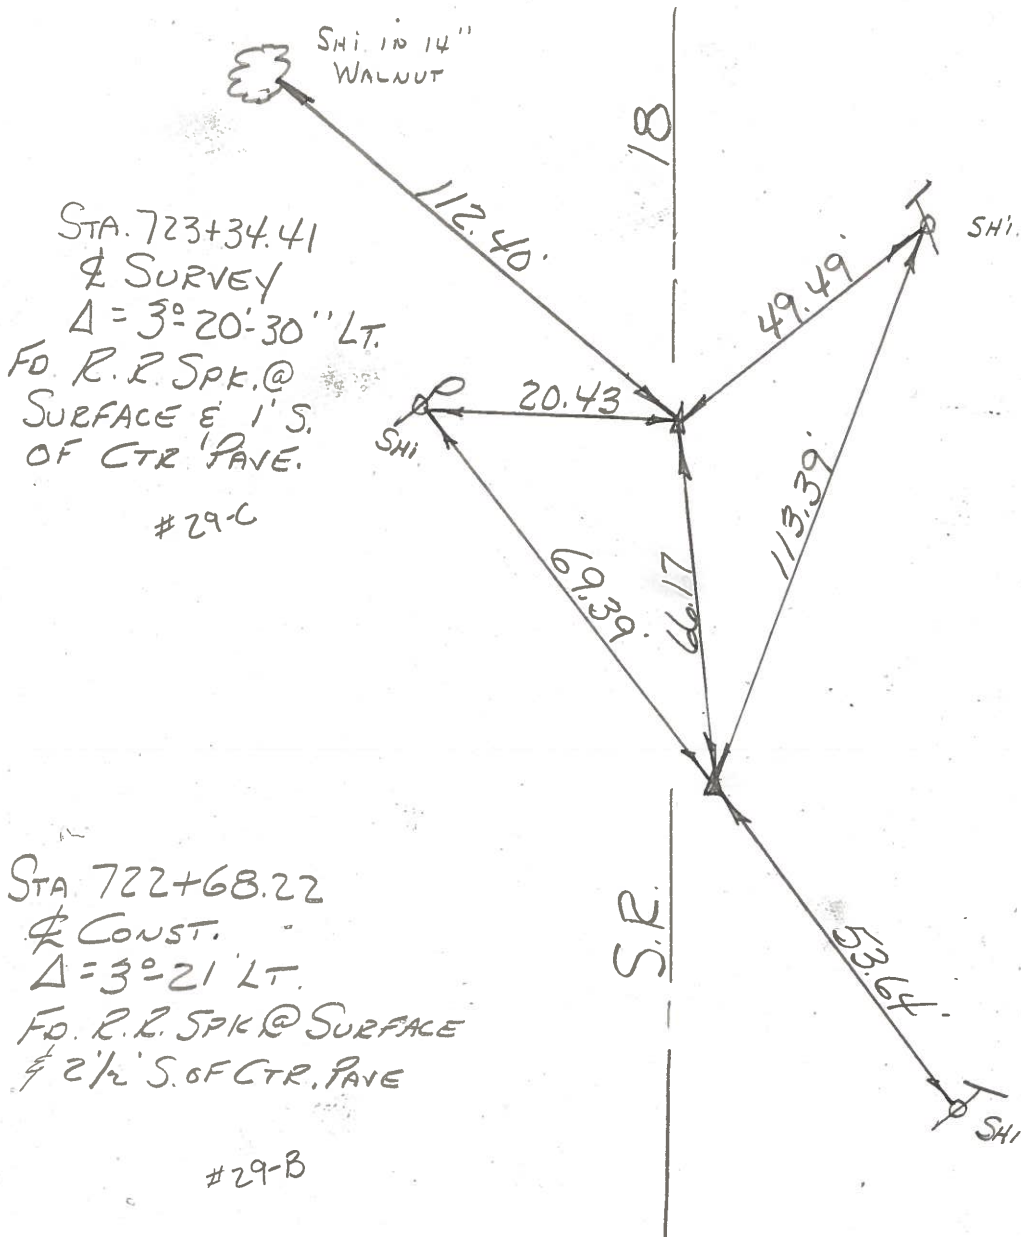 SHi in 14"
WALNUT
18
112.40'
STA. 723+34.41
℄ SURVEY
Δ = 3°-20'-30" LT.
FD. R.R. SPK. @
SURFACE & 1' S.
OF CTR PAVE.
#29-C
49.49'
SHi.
20.43
SHi
113.39'
69.39'
66.17
STA 722+68.22
℄ CONST.
Δ = 3°-21' LT.
FD. R.R. SPK @ SURFACE
& 2 1/2' S. OF CTR. PAVE
#29-B
S.R.
53.64'
SHi